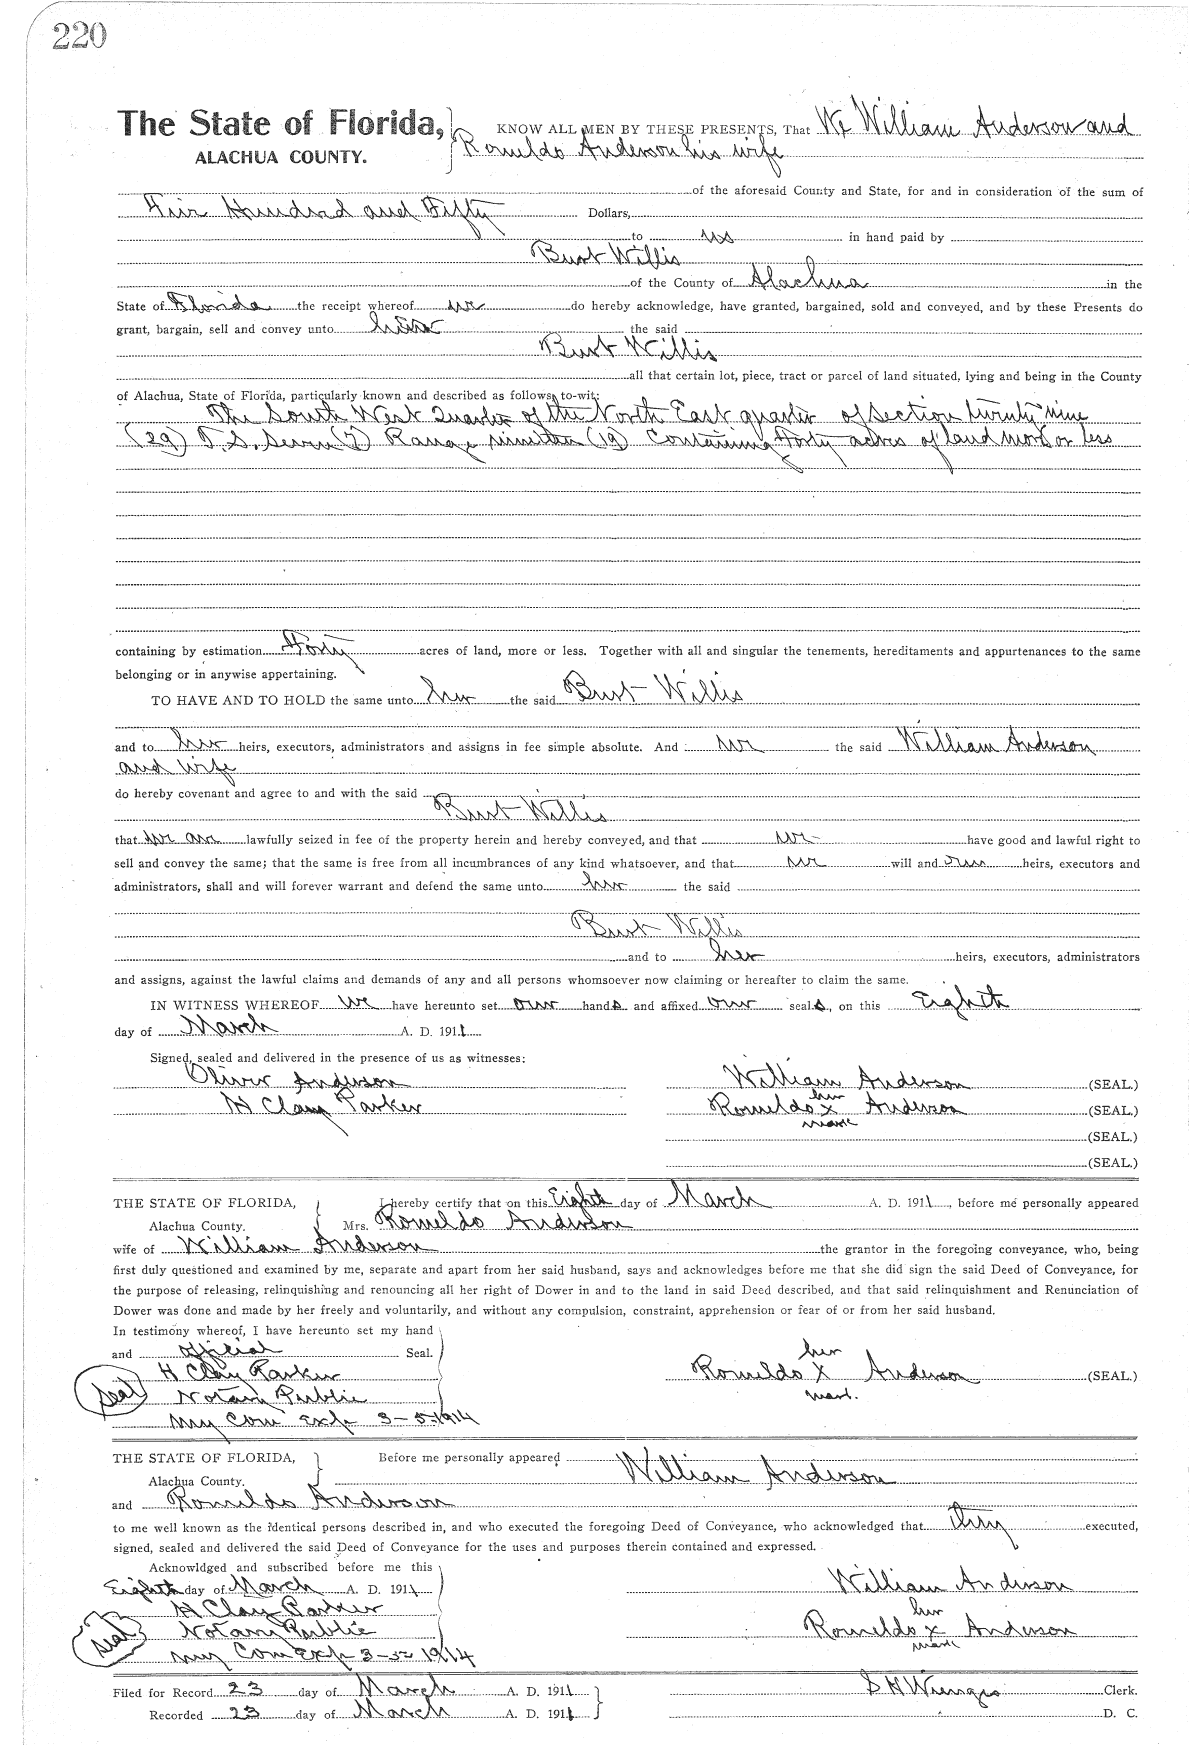 220
The State of Florida, KNOW ALL MEN BY THESE PRESENTS, That We William Anderson and
ALACHUA COUNTY. Romeldo Anderson his wife
of the aforesaid County and State, for and in consideration of the sum of
Hundred and Fifty Dollars,
to us in hand paid by
Burt Willis
of the County of Alachua in the
State of Florida the receipt whereof we do hereby acknowledge, have granted, bargained, sold and conveyed, and by these Presents do
grant, bargain, sell and convey unto the said
Burt Willis
all that certain lot, piece, tract or parcel of land situated, lying and being in the County
of Alachua, State of Florida, particularly known and described as follows, to-wit:
The South West Quarter of the North East quarter of Section twenty nine
(29) T.S. Seven (7) Range nineteen (19) Containing Forty acres of land more or less
containing by estimation Forty acres of land, more or less. Together with all and singular the tenements, hereditaments and appurtenances to the same
belonging or in anywise appertaining.
TO HAVE AND TO HOLD the same unto her the said Burt Willis
and to her heirs, executors, administrators and assigns in fee simple absolute. And we the said William Anderson
and wife
do hereby covenant and agree to and with the said
Burt Willis
that we are lawfully seized in fee of the property herein and hereby conveyed, and that we have good and lawful right to
sell and convey the same; that the same is free from all incumbrances of any kind whatsoever, and that we will and our heirs, executors and
administrators, shall and will forever warrant and defend the same unto her the said
Burt Willis
and to her heirs, executors, administrators
and assigns, against the lawful claims and demands of any and all persons whomsoever now claiming or hereafter to claim the same.
IN WITNESS WHEREOF We have hereunto set our hands and affixed our seals, on this Eighth
day of March A. D. 1911
Signed, sealed and delivered in the presence of us as witnesses:
Oliver Anderson William Anderson (SEAL.)
H Clay Parker Romeldo her x mark Anderson (SEAL.)
(SEAL.)
(SEAL.)
THE STATE OF FLORIDA, I hereby certify that on this Eighth day of March A. D. 1911, before me personally appeared
Alachua County. Mrs. Romeldo Anderson
wife of William Anderson the grantor in the foregoing conveyance, who, being
first duly questioned and examined by me, separate and apart from her said husband, says and acknowledges before me that she did sign the said Deed of Conveyance, for
the purpose of releasing, relinquishing and renouncing all her right of Dower in and to the land in said Deed described, and that said relinquishment and Renunciation of
Dower was done and made by her freely and voluntarily, and without any compulsion, constraint, apprehension or fear of or from her said husband.
In testimony whereof, I have hereunto set my hand
and official Seal.
her
H Clay Parker Romeldo X Anderson (SEAL.)
Seal Notary Public mark.
My Com Exp 3-5-1914
THE STATE OF FLORIDA, Before me personally appeared William Anderson
Alachua County.
and Romeldo Anderson
to me well known as the identical persons described in, and who executed the foregoing Deed of Conveyance, who acknowledged that they executed,
signed, sealed and delivered the said Deed of Conveyance for the uses and purposes therein contained and expressed.
Acknowldged and subscribed before me this
Eighth day of March A. D. 1911 William Anderson
H Clay Parker her
Seal Notary Public Romeldo x Anderson
My Com Exp 3-5- 1914 mark
Filed for Record 23 day of March A. D. 1911 S H Wienges Clerk.
Recorded 23 day of March A. D. 1911 D. C.